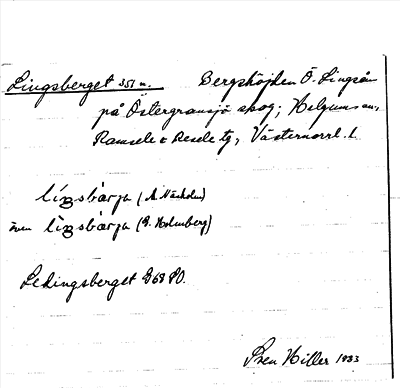 Lingsberget 351 m. Bergshöjden Ö. Lingsån
på Östergransjö skog; Helgums sn,
Ramsele & Resele tg, Västernorrl. l.
líŋsbærja (A. Näsholm)
även lìŋsbærja (E. Holmberg)
Ledingsberget G 68 SO.
Sven Hiller 1933